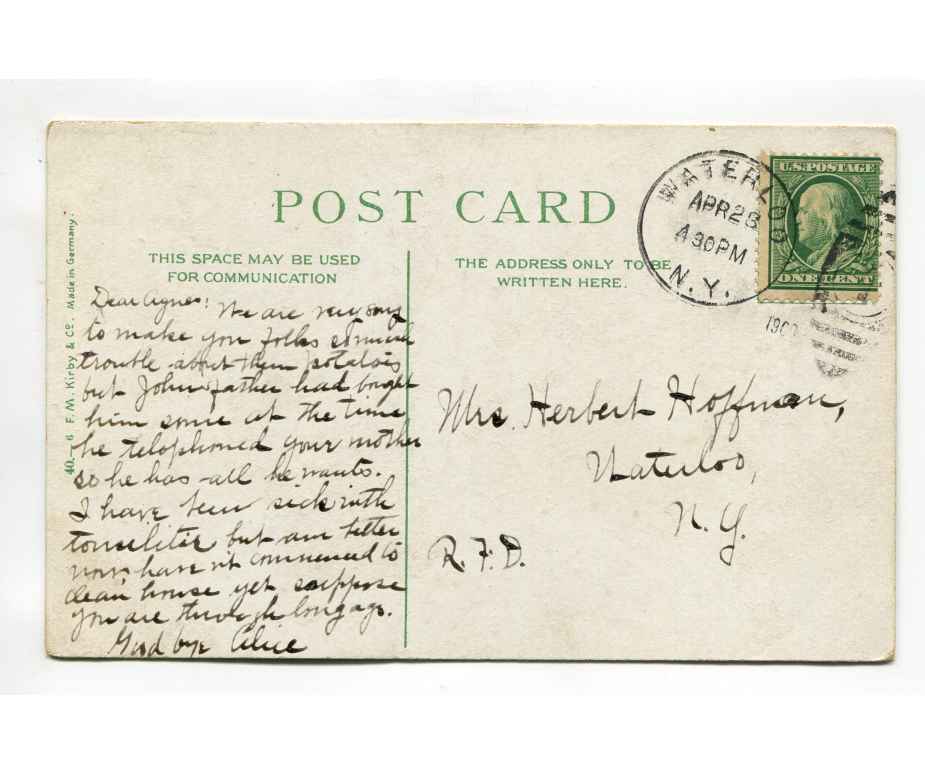 POST CARD
THIS SPACE MAY BE USED
FOR COMMUNICATION
THE ADDRESS ONLY TO BE
WRITTEN HERE.
40.-6 F. M. Kirby & Co. Made in Germany.
WATERLOO
APR 28
4 30 PM
N.Y.
190
U.S. POSTAGE
ONE CENT
Dear Agnes: We are very sorry
to make you folks so much
trouble about them potatois
but John father had bought
him some at the time
he telophoned your mother
so he has all he wants.
I have been sick with
tonseliter but am better
now have nt commenced to
clean house yet suppose
you are through long ago.
Good bye Alice
Mrs. Herbert Hoffman,
Waterloo,
N.Y.
R.F.D.